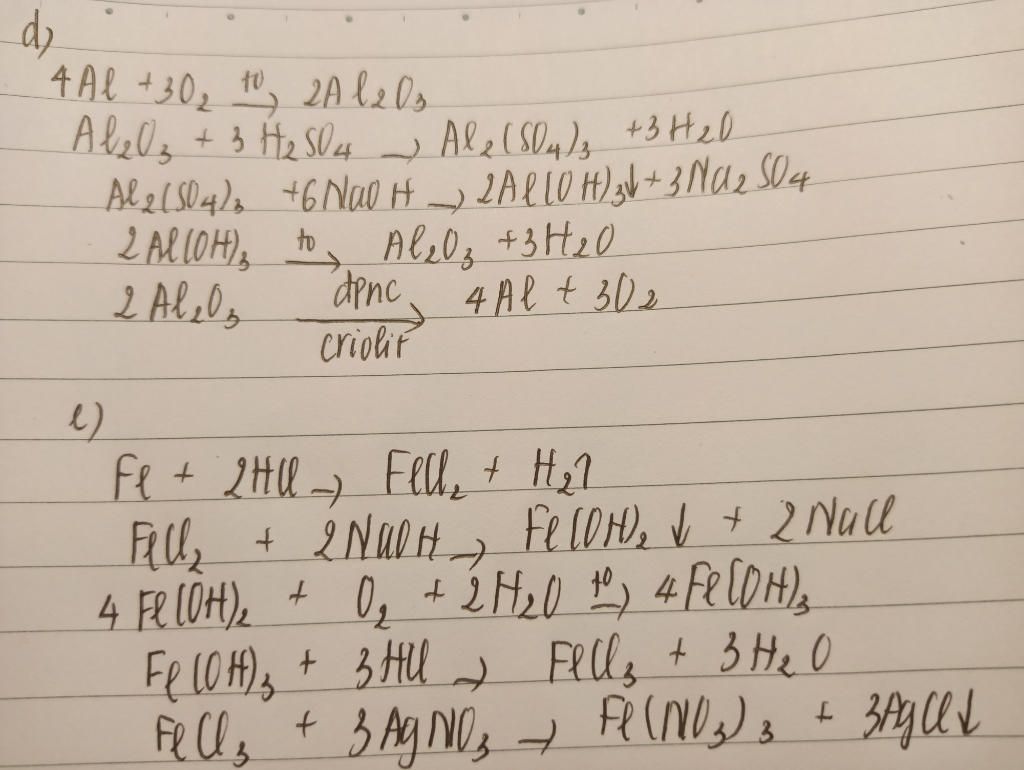 d)
4Al + 3O₂ →(t⁰) 2Al₂O₃
Al₂O₃ + 3H₂SO₄ → Al₂(SO₄)₃ + 3H₂O
Al₂(SO₄)₃ + 6NaOH → 2Al(OH)₃↓ + 3Na₂SO₄
2Al(OH)₃ →(t⁰) Al₂O₃ + 3H₂O
2Al₂O₃ →(đpnc / criolit) 4Al + 3O₂
e)
Fe + 2HCl → FeCl₂ + H₂↑
FeCl₂ + 2NaOH → Fe(OH)₂↓ + 2NaCl
4Fe(OH)₂ + O₂ + 2H₂O →(t⁰) 4Fe(OH)₃
Fe(OH)₃ + 3HCl → FeCl₃ + 3H₂O
FeCl₃ + 3AgNO₃ → Fe(NO₃)₃ + 3AgCl↓